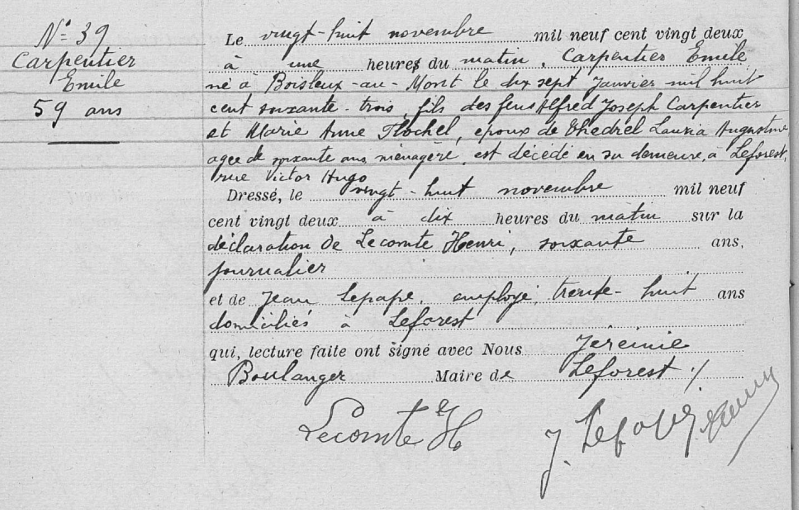 N° 39
Carpentier
Emile
59 ans
Le vingt-huit novembre mil neuf cent vingt deux
à une heures du matin, Carpentier Emile
né à Boisleux-au-Mont le dix sept Janvier mil huit
cent soixante-trois, fils des feus Alfred Joseph Carpentier
et Marie Anne Flochel, epoux de Thedrel Lauzia Augustine
agée de soixante ans ménagère, est décédé en sa demeure, à Leforest,
rue Victor Hugo
Dressé, le vingt-huit novembre mil neuf
cent vingt deux à dix heures du matin sur la
déclaration de Lecomte Henri, soixante ans,
journalier
et de Jean Lepape, employé, trente-huit ans
domiciliés à Leforest
qui, lecture faite ont signé avec Nous Jéréinie
Boulanger Maire de Leforest ./
Lecomte H
J. Lepape